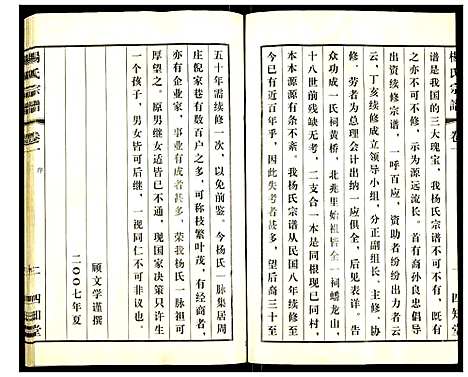 楊氏宗譜
卷一
四知堂
譜是我国的三大瑰宝，我楊氏宗譜不可不有，既有
之亦不可不修，示为源远流长。首有商孙良冬同志
出资续修宗谱，一呼百应，资助者纷纷出力者云
云，丁亥续修成立领导小组，分正副组长。主修、协
修，劳者为总理会计出纳一应俱全，后见表详。告
众功成一氏祠黄桥，北兆里始祖皆全一祠蟠龙山，
十八世前残缺无考，二支合一本是同根现已同村，
本本源源有条不紊。我杨氏宗谱从民国八年续修至
今已有近百年乎，因此失考者甚多，望后裔三十至
五十年需续修一次，以免前鉴。今杨氏一脉集居周
庄倪家巷有数百户之多，可称枝繁叶茂，有经商者，
亦有企业家，事业有成者甚多，荣我杨氏一脉袓可
厚望之。原男继女适皆已不通，现国家决策只许生
一个孩子，男女皆可后继，一视同仁不可非议也。
顾文学谨撰
二00七年夏
楊氏宗譜
卷一
序
二
四知堂